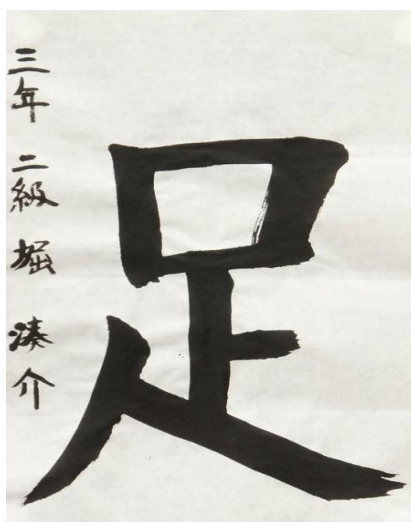 足
三年 二級 堀 湊介